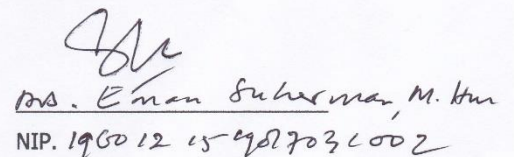 Drs. Eman Suherman, M. Hum
NIP. 19601215 198703 1 002